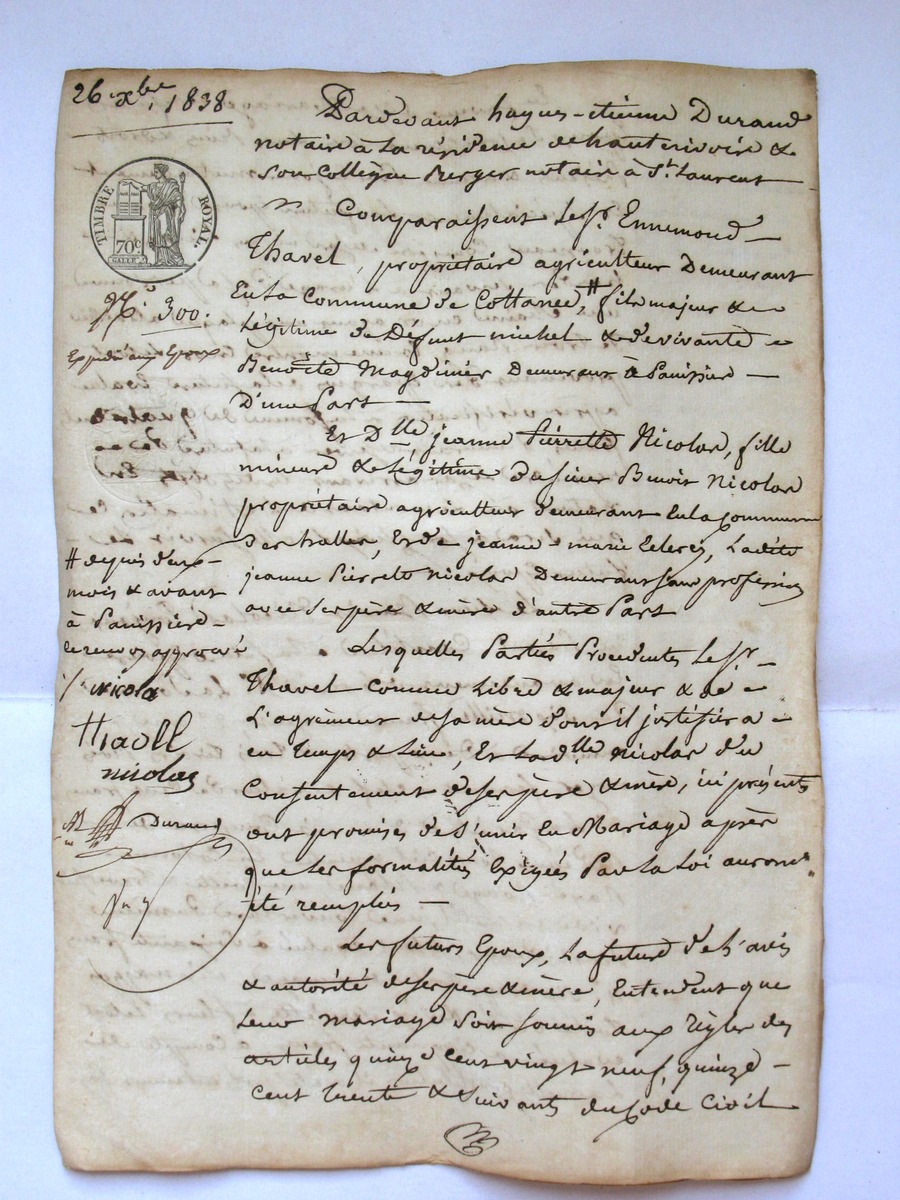 26 xbre 1838
Pardevant hugues-étienne Durand
notaire à la résidence de hauterivoire &
son Collègue Berger notaire à St Laurent
Comparaissent le Sr. Ennemond
Thavel, propriétaire agriculteur Demeurant
En la Commune de Cottance, # fils majeur &
légitime de Défunt michel & de vivante
Benoîte Magdinier Demeurant à Panissière
D'une Part
Et Dlle jeanne Pierrette Nicolas, fille
mineure & Légitime du sieur Benoit Nicolas
propriétaire agriculteur demeurant En la Commune
des halles, Et de jeanne-marie, Ladite
jeanne Pierrette Nicolas Demeurant sans profession
avec ses père & mère d'autre Part
Lesquelles Parties Procédentes le Sr
Thavel comme libre & majeur & de
L'agrément de sa mère dont il justifiera
en temps & lieu, Et la dlle Nicolas du
Consentement de ses père & mère, ici présents
ont promis de s'unir En Mariage après
que les formalités Exigées Par la Loi auront
été remplies
Les futurs Epoux, La future de l'avis
& autorité de ses père & mère, Entendent que
leur mariage soit soumis aux règles des
articles quinze cent vingt neuf, quinze
cent trente & suivants du Code Civil
TIMBRE ROYAL
70 c
No. 300.
Expédié aux Epoux
# depuis deux
mois & avant
à Panissière
ce renvoi approuvé
nicola
Thavell
nicolas
Durand